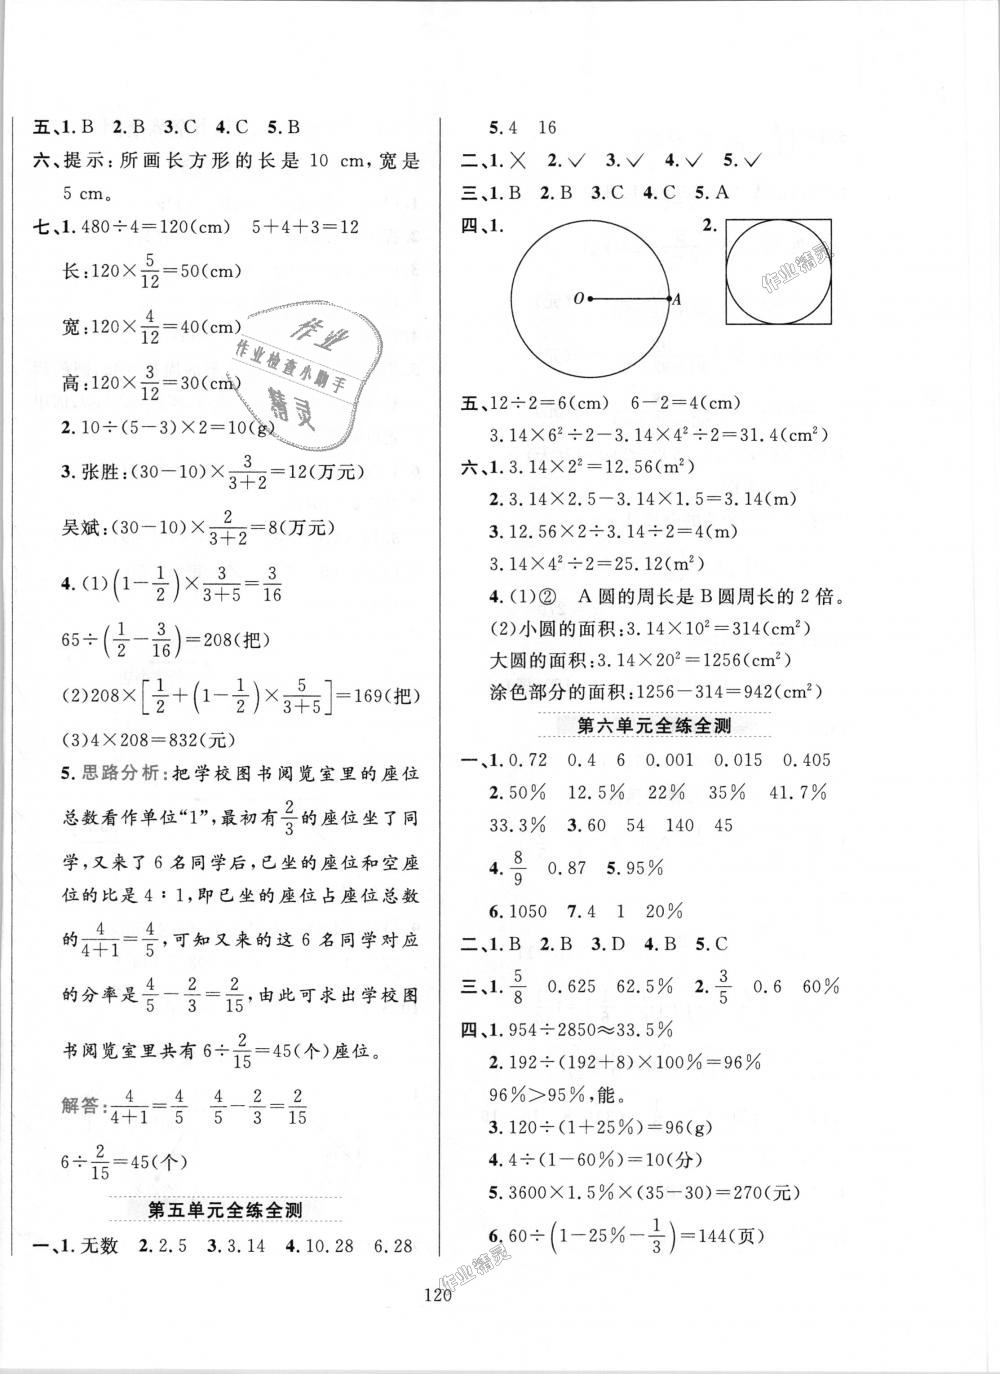 五、1. B 2. B 3. C 4. C 5. B
六、提示:所画长方形的长是 10 cm,宽是
5 cm。
七、1. 480÷4=120(cm) 5+4+3=12
长:120×5/12=50(cm)
宽:120×4/12=40(cm)
高:120×3/12=30(cm)
2. 10÷(5-3)×2=10(g)
3. 张胜:(30-10)×3/(3+2)=12(万元)
吴斌:(30-10)×2/(3+2)=8(万元)
4. (1)(1-1/2)×3/(3+5)=3/16
65÷(1/2-3/16)=208(把)
(2)208×[1/2+(1-1/2)×5/(3+5)]=169(把)
(3)4×208=832(元)
5. 思路分析:把学校图书阅览室里的座位
总数看作单位“1”,最初有2/3的座位坐了同
学,又来了 6 名同学后,已坐的座位和空座
位的比是 4∶1,即已坐的座位占座位总数
的4/(4+1)=4/5,可知又来的这 6 名同学对应
的分率是4/5-2/3=2/15,由此可求出学校图
书阅览室里共有 6÷2/15=45(个)座位。
解答:4/(4+1)=4/5 4/5-2/3=2/15
6÷2/15=45(个)
第五单元全练全测
一、1. 无数 2. 2.5 3. 3.14 4. 10.28 6.28
5. 4 16
二、1. ✕ 2. ✓ 3. ✓ 4. ✓ 5. ✓
三、1. B 2. B 3. C 4. C 5. A
四、1. 2.
O A
五、12÷2=6(cm) 6-2=4(cm)
3.14×6²÷2-3.14×4²÷2=31.4(cm²)
六、1. 3.14×2²=12.56(m²)
2. 3.14×2.5-3.14×1.5=3.14(m)
3. 12.56×2÷3.14÷2=4(m)
3.14×4²÷2=25.12(m²)
4. (1)② A 圆的周长是 B 圆周长的 2 倍。
(2)小圆的面积:3.14×10²=314(cm²)
大圆的面积:3.14×20²=1256(cm²)
涂色部分的面积:1256-314=942(cm²)
第六单元全练全测
一、1. 0.72 0.4 6 0.001 0.015 0.405
2. 50% 12.5% 22% 35% 41.7%
33.3% 3. 60 54 140 45
4. 8/9 0.87 5. 95%
6. 1050 7. 4 1 20%
二、1. B 2. B 3. D 4. B 5. C
三、1. 5/8 0.625 62.5% 2. 3/5 0.6 60%
四、1. 954÷2850≈33.5%
2. 192÷(192+8)×100%=96%
96%>95%,能。
3. 120÷(1+25%)=96(g)
4. 4÷(1-60%)=10(分)
5. 3600×1.5%×(35-30)=270(元)
6. 60÷(1-25%-1/3)=144(页)
120
作业
作业检查小助手
精灵
作业精灵
作业精灵